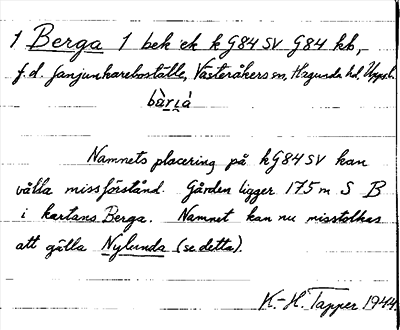 1 Berga 1 bek ek k G84 SV G84 kb,
f.d. fanjunkareboställe, Västeråkers sn, Hagunda hd, Uppsl.
bàrɩá
Namnets placering på kG84SV kan
vålla missförstånd. Gården ligger 175 m S B
i kartans Berga. Namnet kan nu misstolkas
att gälla Nylunda (se detta).
K.-H. Tapper 1944.